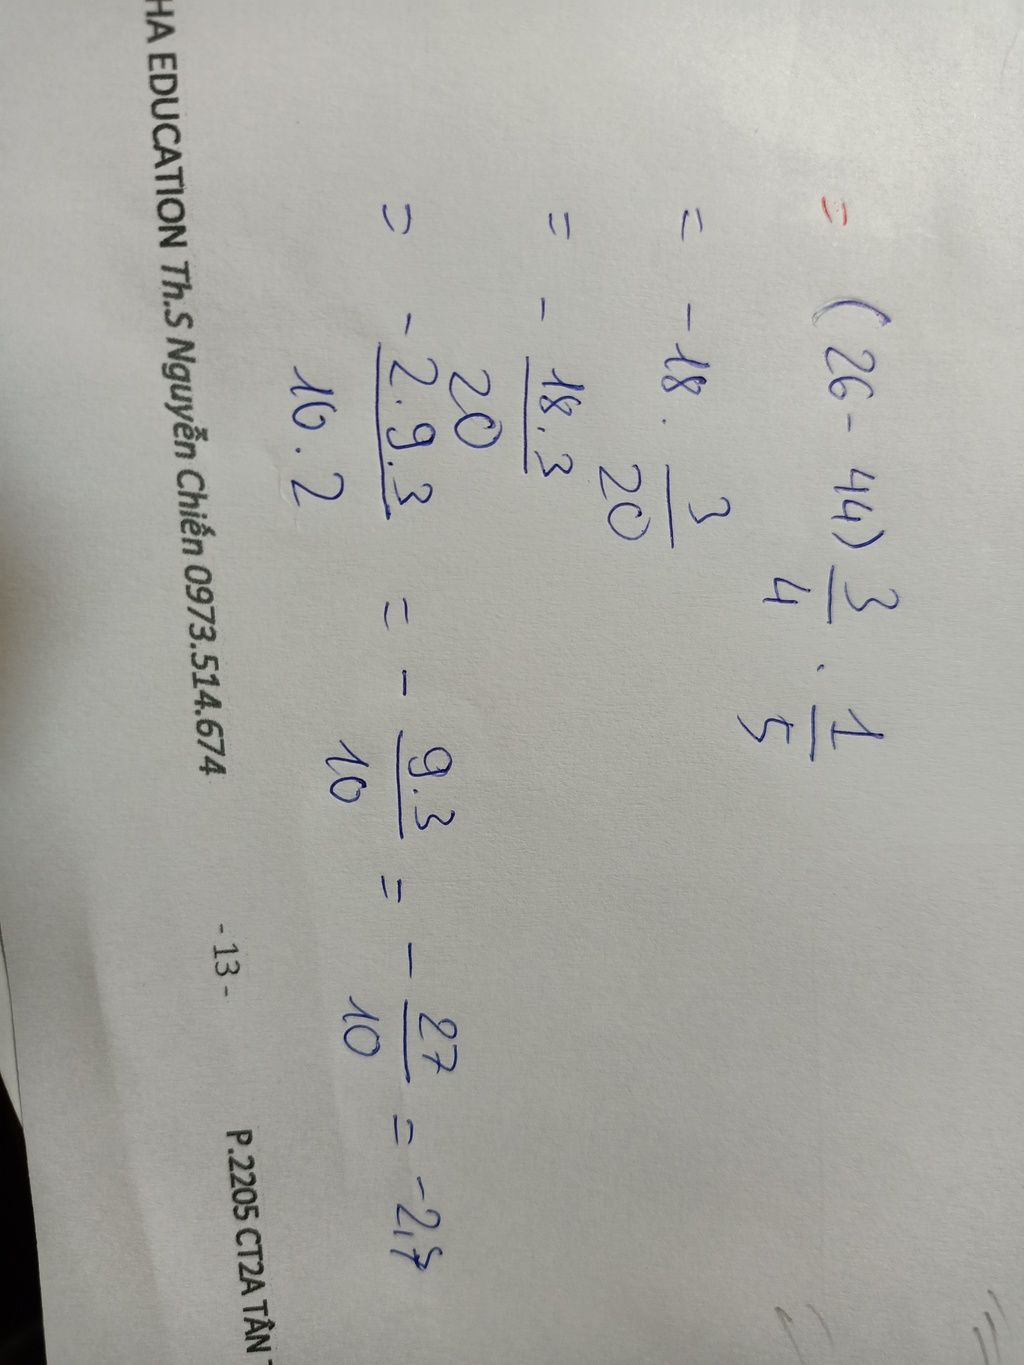 = (26 - 44) 3/4 . 1/5
= -18 . 3/20
= - 18.3/20
= - 2.9.3/10.2 = - 9.3/10 = - 27/10 = -2,7
HA EDUCATION Th.S Nguyễn Chiến 0973.514.674 - 13 - P.2205 CT2A TÂN